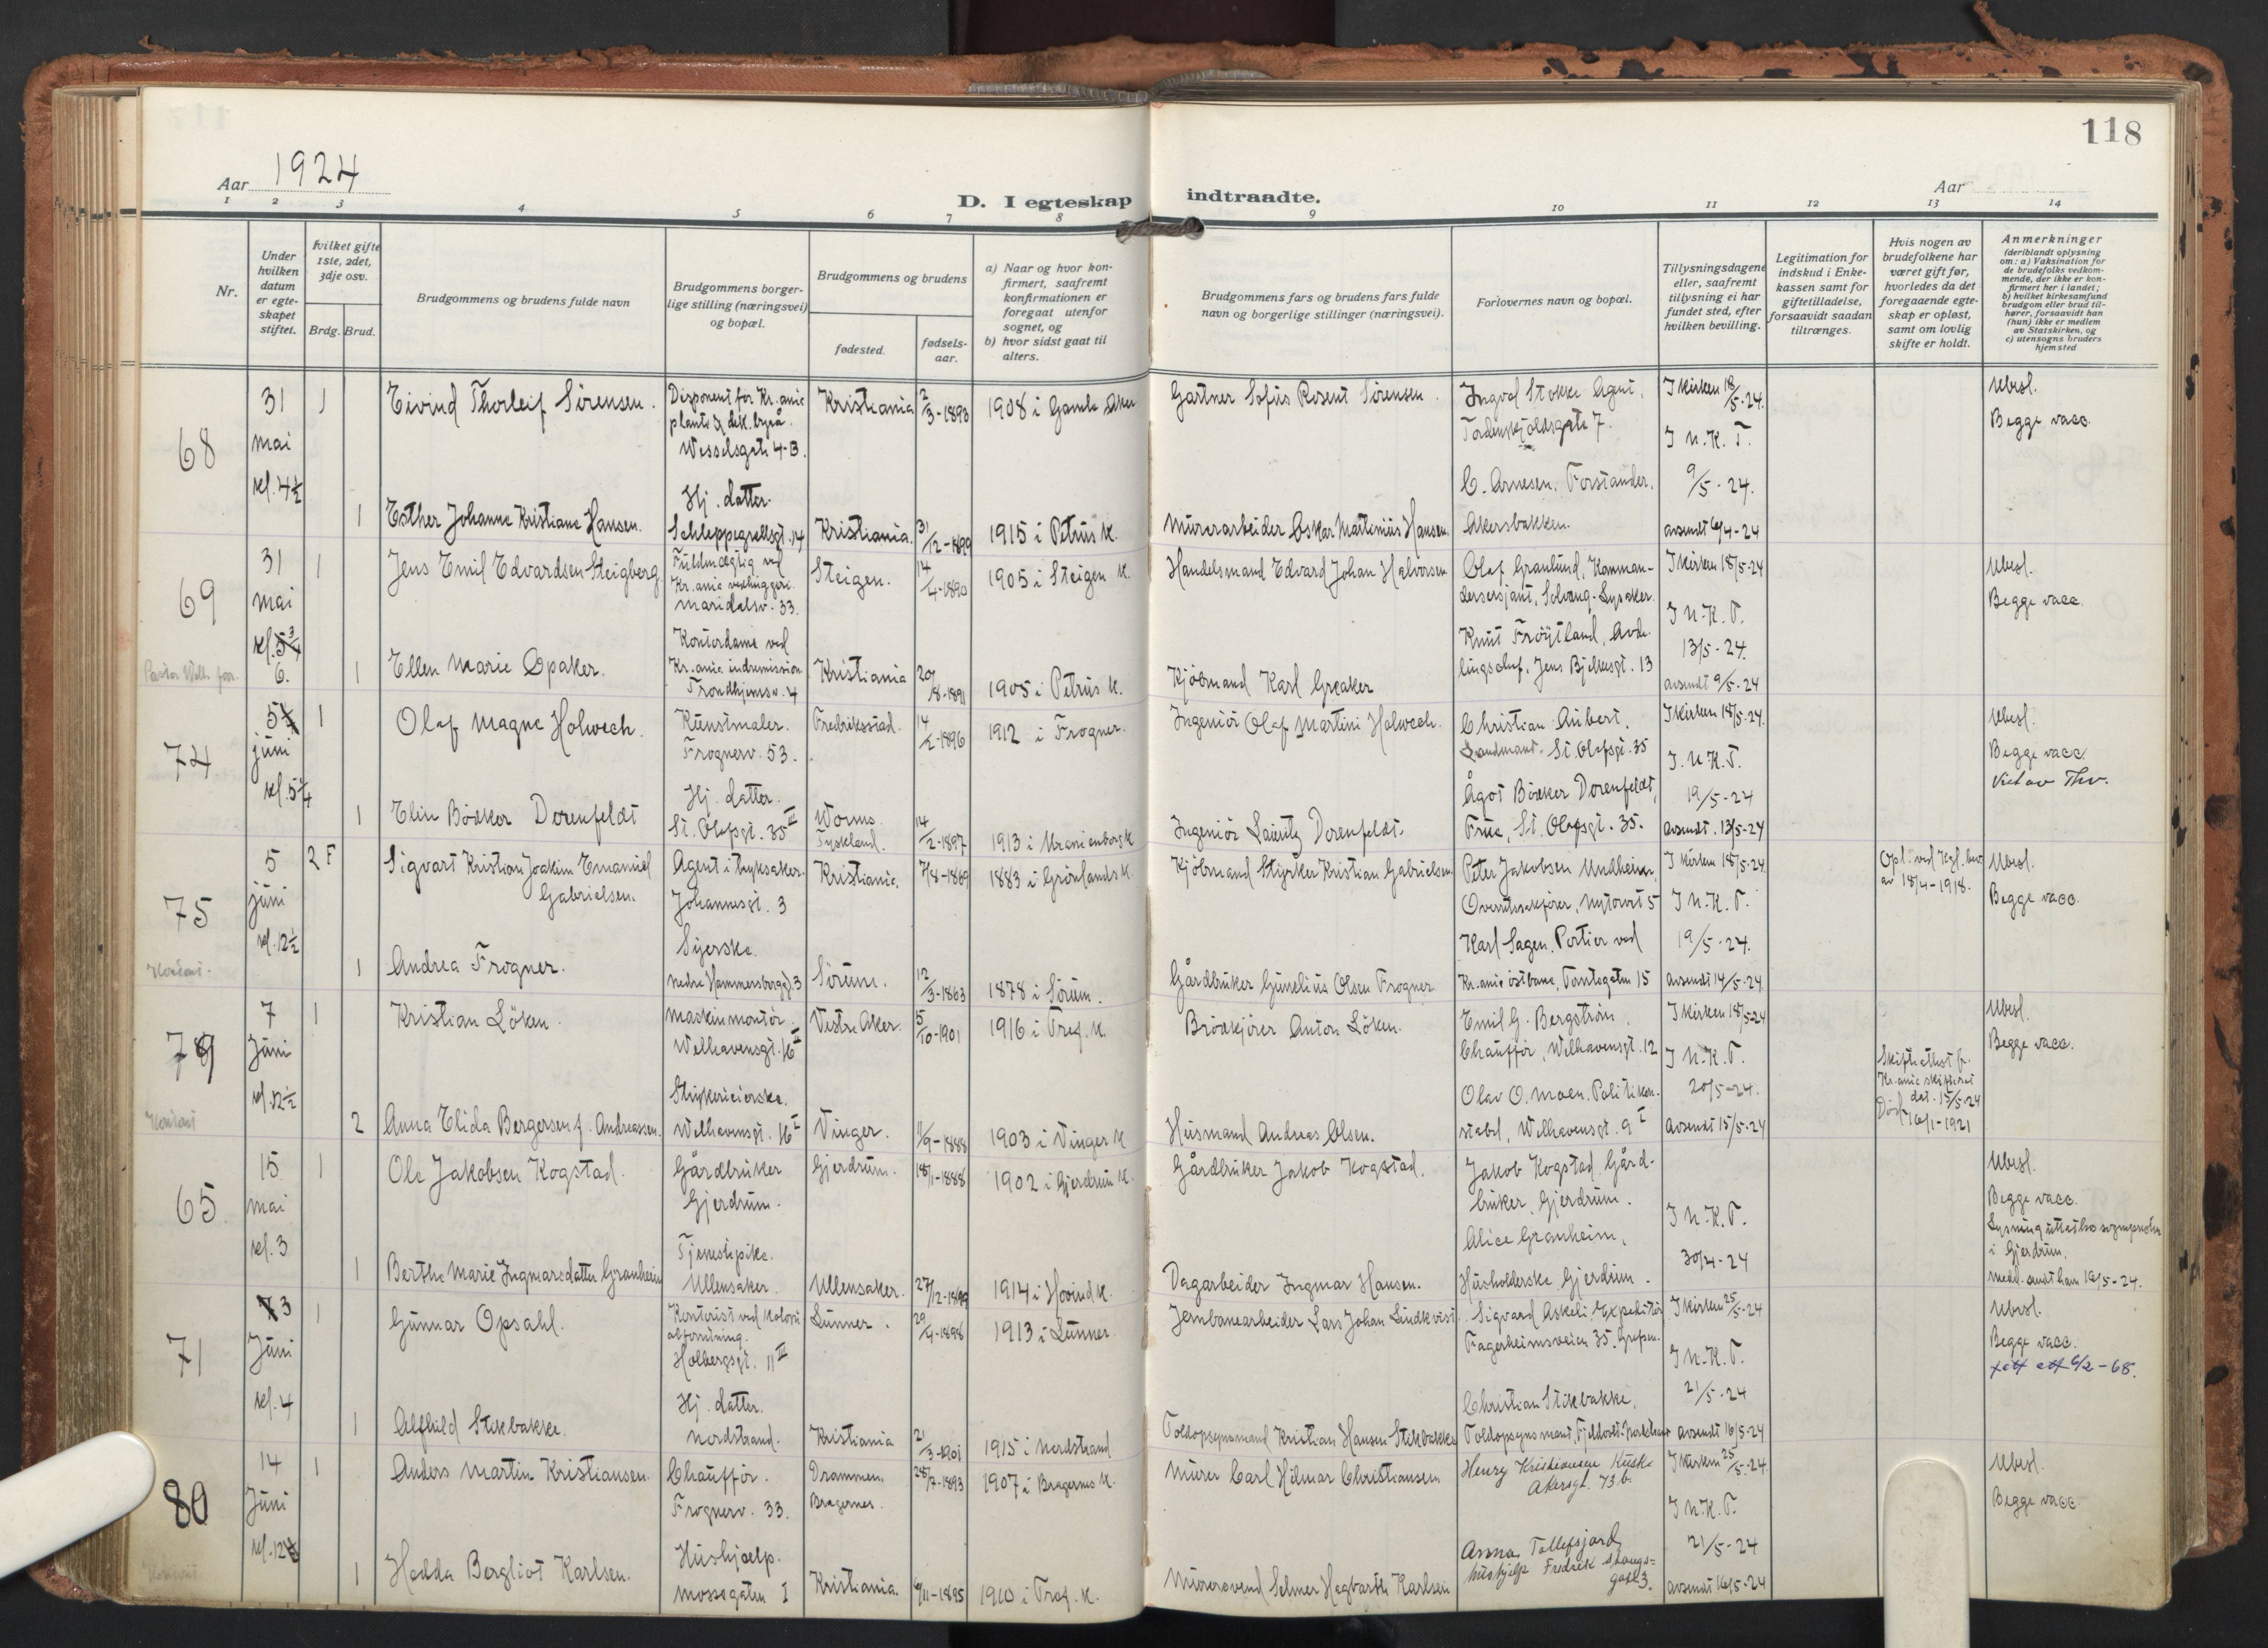 118
Aar 1924
D. I egteskap indtraadte.
Aar
1 2 3 4 5 6 7 8 9 10 11 12 13 14
Nr.
Under hvilken datum er egte-skapet stiftet.
hvilket gifte 1ste, 2det, 3dje osv.
Brdg. Brud.
Brudgommens og brudens fulde navn
Brudgommens borger-
lige stilling (næringsvei)
og bopæl.
Brudgommens og brudens
fødested.
fødsels-
aar.
a) Naar og hvor kon-
firmert, saafremt
konfirmationen er
foregaat utenfor
sognet, og
b) hvor sidst gaat til
alters.
Brudgommens fars og brudens fars fulde
navn og borgerlige stillinger (næringsvei).
Forlovernes navn og bopæl.
Tillysningsdagene
eller, saafremt
tillysning ei har
fundet sted, efter
hvilken bevilling.
Legitimation for
indskud i Enke-
kassen samt for
giftetilladelse,
forsaavidt saadan
tiltrænges.
Hvis nogen av
brudefolkene har
været gift før,
hvorledes da det
foregaaende egte-
skap er opløst,
samt om lovlig
skifte er holdt.
Anmerkninger
(deriblandt oplysning
om: a) Vaksination for
de brudefolks vedkom-
mende, der ikke er kon-
firmert her i landet;
b) hvilket kirkesamfund
brudgom eller brud til-
hører, forsaavidt han
(hun) ikke er medlem
av Statskirken, og
c) utensogns bruders
hjemsted
68
31
mai
kl. 4½
1
Eivind Thorleif Sörensen.
Disponent for Kr.ania
plante & dek. byrå.
Wesselsgate 4 B.
Kristiania
2/3-1893
1908 i Gamle Aker
Gartner Sofus Rosent Sörensen.
Ingvol Stokke Agent,
Tordenskjoldsgate 7.
I kirken 18/5-24.
I N.K.T.
9/5-24.
Ubesl.
Begge vacc.
1
Esther Johanne Kristiane Hansen.
Hj. datter.
Schleppegrellsgt. 14
Kristiania.
31/12-1899
1915 i Petrus K.
Murerarbeider Oskar Martinius Hansen.
C. Arnesen, Forstander,
Akersbakken.
avsendt 6/4-24
69
31
mai
kl. 5¾
6.
1
Jens Emil Edvardsen Steigberg
Fuldmægtig ved
Kr.ania vedhuggeri.
Maridalsv. 33.
Steigen.
14/4-1890
1905 i Steigen K.
Handelsmand Edvard Johan Halvorsen
Olaf Granlund, Komman-
dersersjant, Solvang-Lysaker.
I kirken 18/5-24
I N.K.T.
13/5-24.
Ubesl.
Begge vacc.
1
Ellen Marie Opaker.
Kontordame ved
Kr.ania indremission
Trondhjemsv. 4
Kristiania
20/8-1891
1905 i Petrus K.
Kjöbmand Karl Greaker
Knut Fröytland, Avde-
lingschef, Jens Bjelkesgt. 13
avsendt 9/5-24
74
5
juni
kl. 5¼
1
Olaf Magne Holwech.
Kunstmaler.
Frognerv. 53.
Fredriksstad.
14/2-1896
1912 i Frogner.
Ingeniör Olaf Martini Holwech.
Christian Aubert,
Landmand. St. Olafsgt. 35
I kirken 18/5-24.
I N.K.T.
19/5-24
Ubesl.
Begge vacc.
1
Elin Bödker Dorenfeldt
Hj. datter.
St. Olafsgt. 35 III
Worms.
Tyskland.
14/2-1897
1913 i Uranienborg K
Ingeniör Lauritz Dorenfeldt.
Ågot Bödker Dorenfeldt,
Frue, St. Olafsgt. 35.
avsendt. 13/5-24
75
5
juni
kl. 12½
2 F
Sigvart Kristian Joakim Emanuel
Gabrielsen.
Agent i tryksaker.
Johannesgt. 3
Kristiania.
7/8-1869
1883 i Grönlands K.
Kjöbmand Styrker Kristian Gabrielsen
Peter Jakobsen Undheim,
Overretssakförer, Nytorvet 5
I kirken 18/5-24.
I N.K.T.
19/5-24.
Opl. ved Kgl. bev.
av 18/4-1918.
Ubesl.
Begge vacc.
1
Andrea Frogner.
Syerske.
Nedre Hammersborggt. 3
Sörum.
12/3-1863
1878 i Sörum.
Gårdbruker Gunelius Olsen Frogner
Karl Sagen, Portier ved
Kr.ania östbane, Tomtegaten 15
avsendt 14/5-24.
79
7
Juni
kl. 12½
1
Kristian Löken.
Maskinmontör.
Welhavensgt. 16 II
Vestre Aker.
5/10-1901
1916 i Tref. K.
Brödkjörer Anton Löken.
Emil G. Bergström,
Chaufför, Welhavensgt. 12
I kirken 18/5-24
I N.K.T.
20/5-24.
Ubesl.
Begge vacc.
2
Anna Elida Bergersen f. Andreassen.
Welhavensgt. 16 I
Vinger.
11/9-1888
1903 i Vinger K
Husmand Andreas Olsen.
Olav O. Moen, Politikon-
stabel, Welhavensgt. 9 I
avsendt 15/5-24
Skifteattest fr.
Kr.ania skifteret
dat. 15/5-24
Död 16/1-1921
65
15
mai
kl. 3
1
Ole Jakobsen Kogstad.
Gårdbruker
Gjerdrum.
Gjerdrum.
18/1-1888
1902 i Gjerdrum K.
Gårdbruker Jakob Kogstad.
Jakob Kogstad, Gård-
bruker, Gjerdrum.
I N.K.T.
30/4-24
Ubesl.
Begge vacc.
i Gjerdrum.
Medd. sendt ham 19/5-24.
1
Berthe Marie Ingmarsdatter Granheim
Tjenestepike.
Ullensaker.
Ullensaker.
27/12-1899
1914 i Hovind K.
Dagarbeider Ingmar Hansen.
Alice Granheim,
Husholderske, Gjerdrum.
71
3
Juni
kl. 4
1
Gunnar Opsahl.
Kontorist ved Kolonial
forretning.
Holbergsgt. 11 III
Lunner.
29/4-1898
1913 i Lunner.
Jernbanearbeider Lars Johan Lindkvist.
Sigvard Askeli, Expeditör
Fagerheimsveien 35. Grefsen.
I kirken 25/5-24
I N.K.T.
21/5-24
Ubesl.
Begge vacc.
att 6/2-68.
1
Alfhild Stikbakke.
Hj. datter.
Nordstrand.
Kristiania
21/3-1901
1915 i Nordstrand
Toldopsynsmand Kristian Hansen Stikbakke
Christian Stikbakke,
Toldopsynsmand,
avsendt 16/5-24
80
14
Juni
1
Anders Martin Kristiansen.
Chaufför.
Frognerv. 33.
Drammen,
Bragernes.
28/7-1893
1907 i Bragernes K.
Murer Carl Hilmar Christiansen
Henry Kristiansen Kusk
Akersgt. 73 b.
I kirken 25/5-24.
I N.K.T.
21/5-24
Ubesl.
Begge vacc.
1
Hedda Bergliot Karlsen.
Hushjælp.
Mossegaten 1
Kristiania.
6/11-1895
1910 i Tref. K.
Murersvend Selmer Hagbarth Karlsen
Anna Tollefsjord
hushjelp Fredrik Stangs=
gate 3.
avsendt 16/5-24